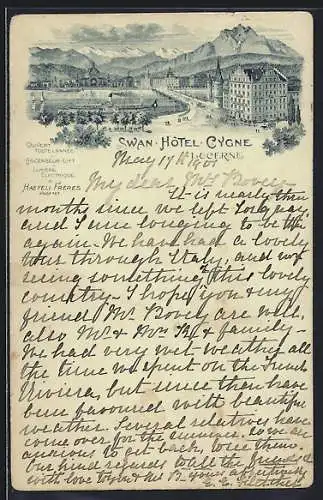 SWAN-HÔTEL-CYGNE
LUCERNE
OUVERT
TOUTE L'ANNÉE
ASCENSEUR-LIFT
LUMIÈRE
ELECTRIQUE
HAEFELI FRÈRES
PROPRT
May 17th 1901
My dear Mrs Bovey
It is nearly three
months since we left
and I am longing to be there
again. We have had a lovely
tour through Italy, and now
seeing something of this lovely
country. I hope you & my
friend Mr Bovey are well,
also Mr & Mrs & family.
We had very wet weather all
the time we spent on the French
Riviera, but since then have
been favoured with beautiful
weather. Several relatives have
come over for the summer. So we are
anxious to get back, to see them.
Our kind regards to all the friends &
with love to you & Mr B. yours affectionately